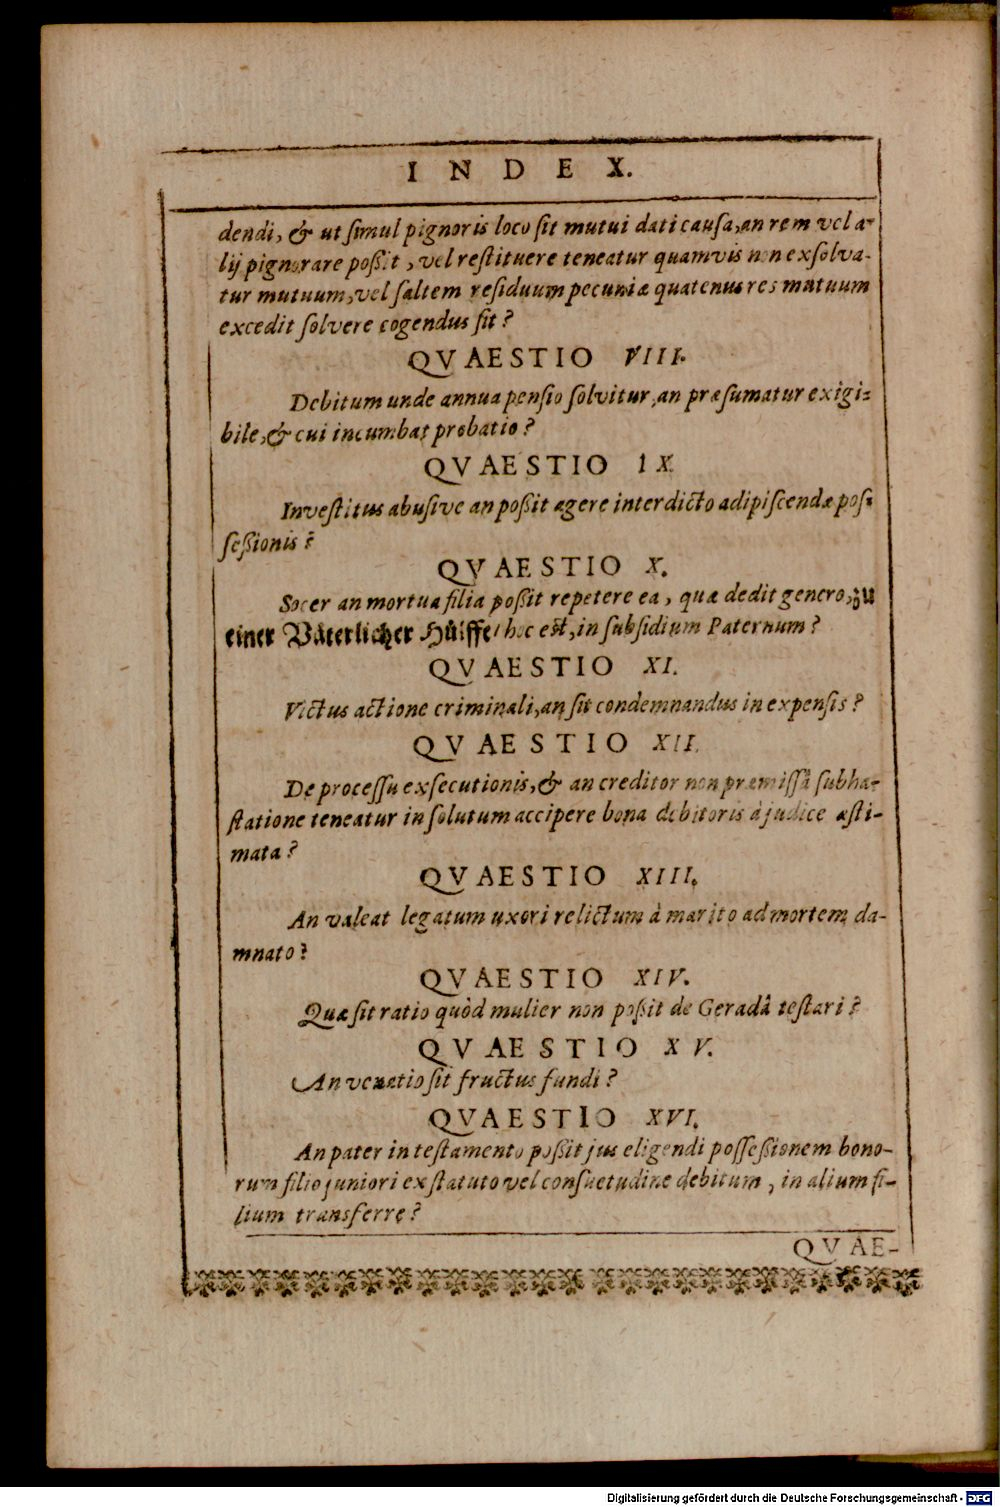 INDEX.
dendi, & ut simul pignoris loco sit mutui dati causa, an rem vel a-
lij pignorare poßit, vel restituere teneatur quamvis non exsolva-
tur mutuum, vel saltem residuum pecuniæ quatenus res mutuum
excedit solvere cogendus sit?
QVAESTIO VIII.
Debitum unde annua pensio solvitur, an præsumatur exigi-
bile, & cui incumbat probatio?
QVAESTIO IX.
Investitus abusive an poßit agere interdicto adipiscendæ pos-
seßionis?
QVAESTIO X.
Socer an mortua filia poßit repetere ea, quæ dedit genero, zu
einer Väterlicher Hülffe / hoc est, in subsidium Paternum?
QVAESTIO XI.
Victus actione criminali, an sit condemnandus in expensis?
QVAESTIO XII.
De processu exsecutionis, & an creditor non præmissâ subha-
statione teneatur in solutum accipere bona debitoris à judice æsti-
mata?
QVAESTIO XIII.
An valeat legatum uxori relictum à marito ad mortem da-
mnato?
QVAESTIO XIV.
Quæ sit ratio quòd mulier non poßit de Geradâ testari?
QVAESTIO XV.
An venatio sit fructus fundi?
QVAESTIO XVI.
An pater in testamento poßit jus eligendi posseßionem bono-
rum filio juniori ex statuto vel consuetudine debitum, in alium fi-
lium transferre?
QVAE-
Digitalisierung gefördert durch die Deutsche Forschungsgemeinschaft - DFG